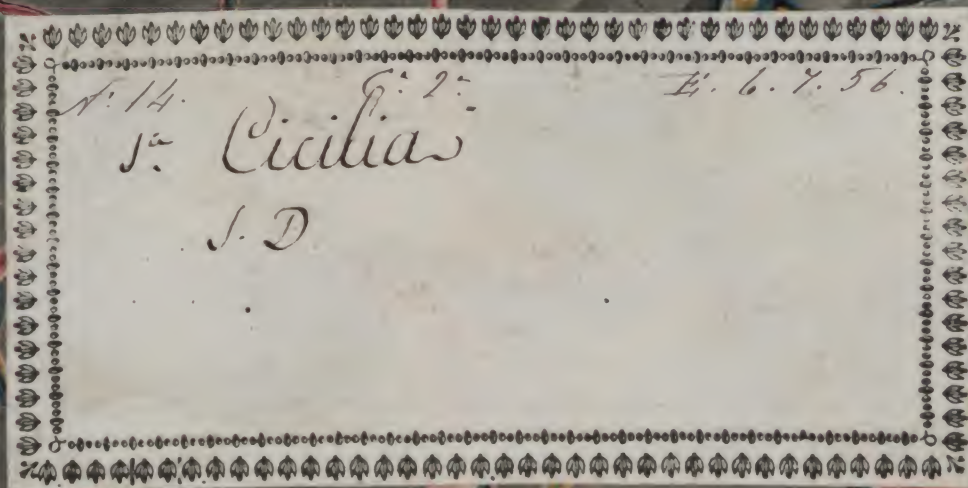 N.º 14. C.ª 2.ª E. 6. 7. 56.
S.ta Cicilia
S. D